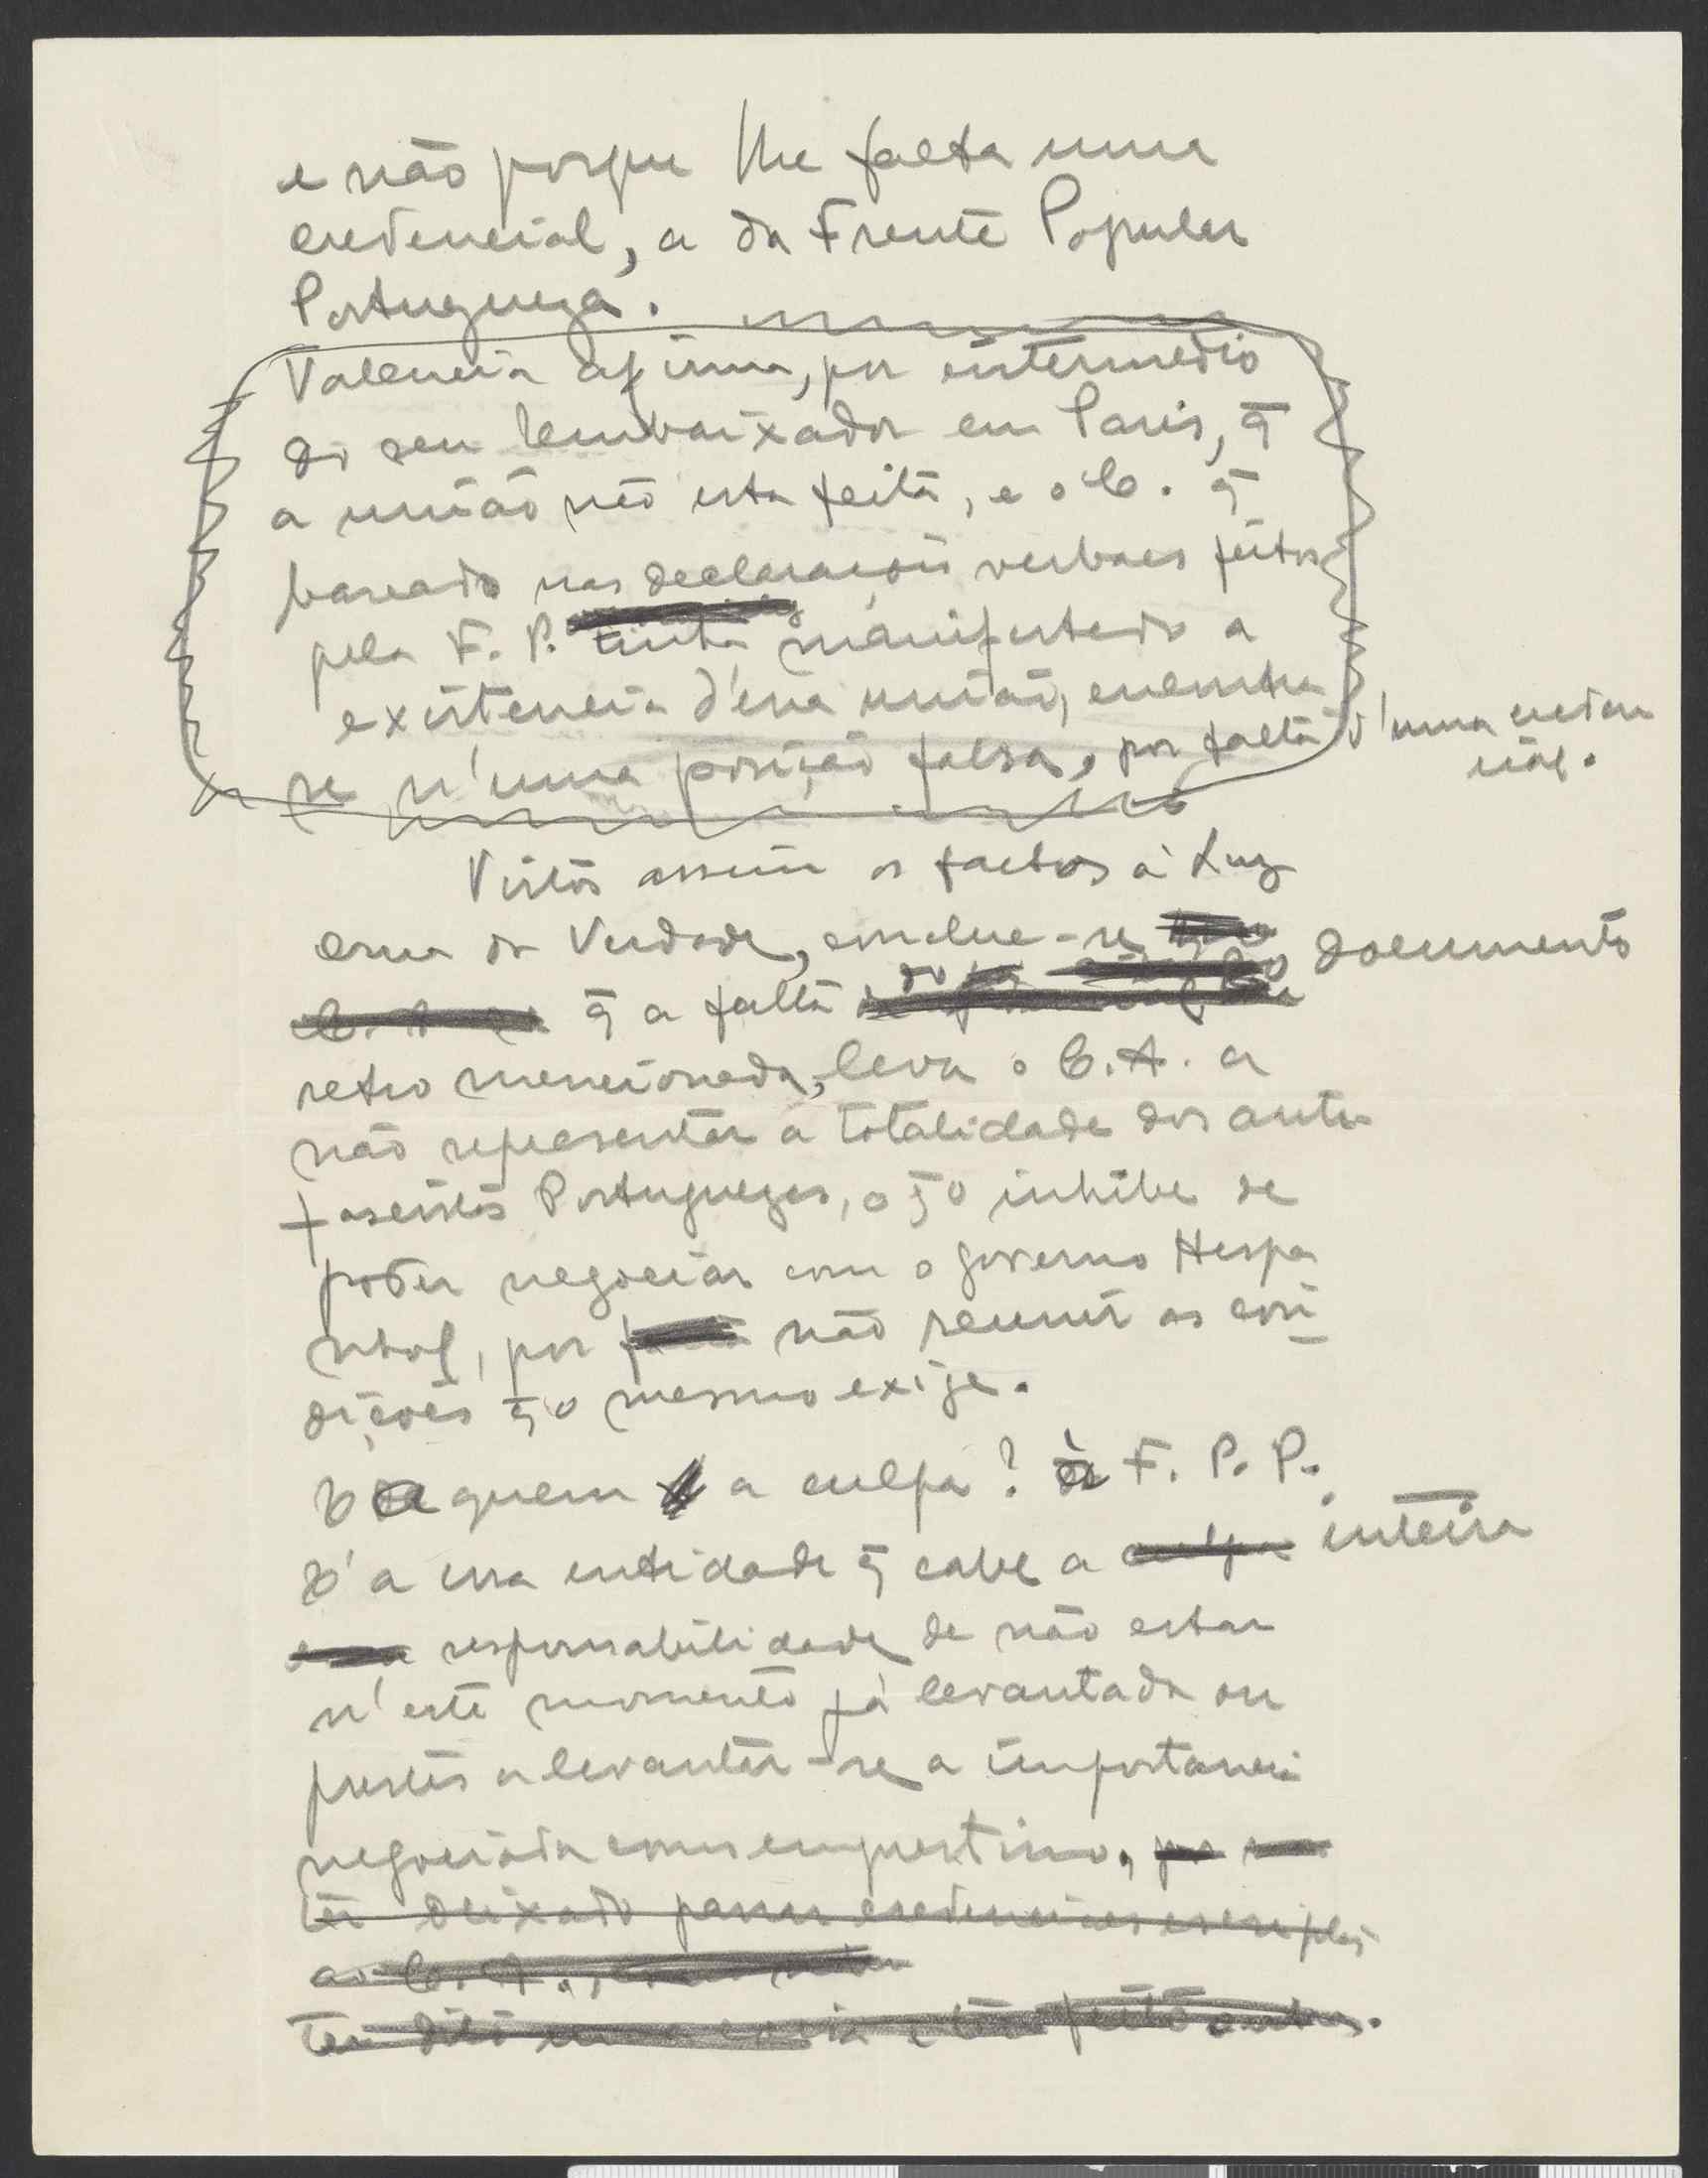 e não porque lhe falta uma
credencial, a da Frente Popular
Portugueza.
Valencia afirma, por intermedio
do seu Embaixador em Paris, q̄
a união não esta feita, e o C. q̄
baseado nas declarações verbaes feitas
pela F. P. tinha manifestado a
existencia d'essa união, encontra
se n'uma posição falsa, por falta d'uma creden
cial.
Vistos assim os factos à Luz
crua da Verdade, conclue-se
q̄ a falta do documento
retro mencionada, leva o C. A. a
não representar a totalidade dos anti-
fascistas Portuguezes, o q̄ o inhibe de
poder negociar com o governo Hespa
nhol, por não reunir as con
dições q̄ o mesmo exije.
E a quem a culpa? à F. P. P.
E' a essa entidade q̄ cabe a inteira
responsabilidade de não estar
n'este momento já levantada ou
prestes a levantar-se a importancia
negociada como emprestimo.
ter deixado passar credenciaes escriptas
ao C. A.,
ter dito